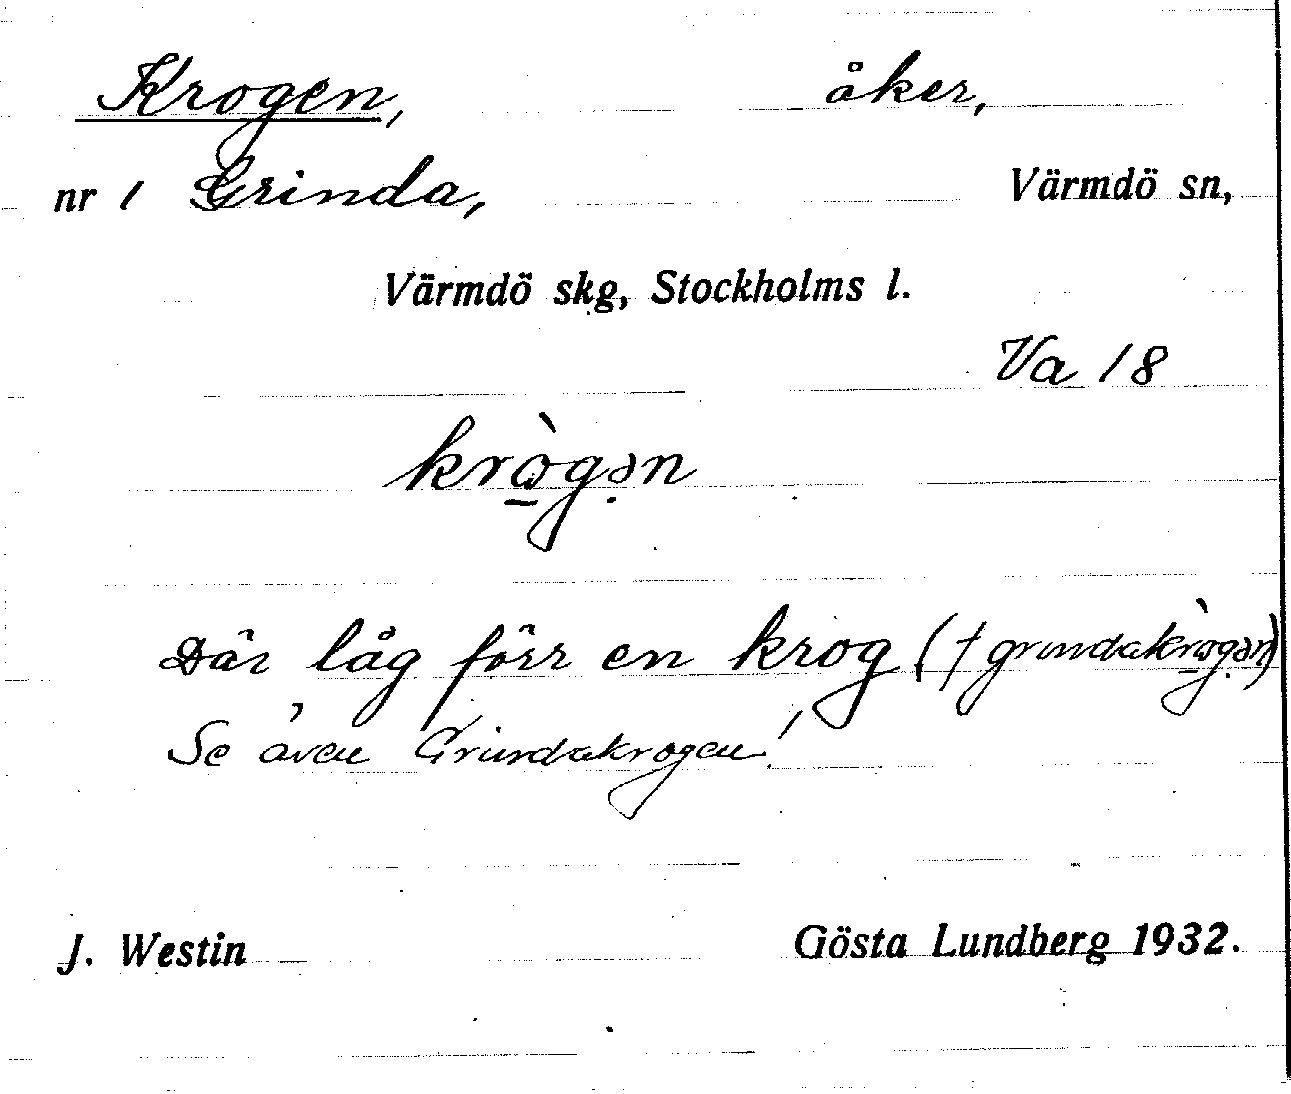 Krogen, åker,
nr 1 Grinda, Värmdö sn,
Värmdö skg, Stockholms l.
Va 18
krò̠gə̣n
Där låg förr en krog († grindakrò̠gə̣n)
Se även Grindakrogen!
J. Westin Gösta Lundberg 1932.